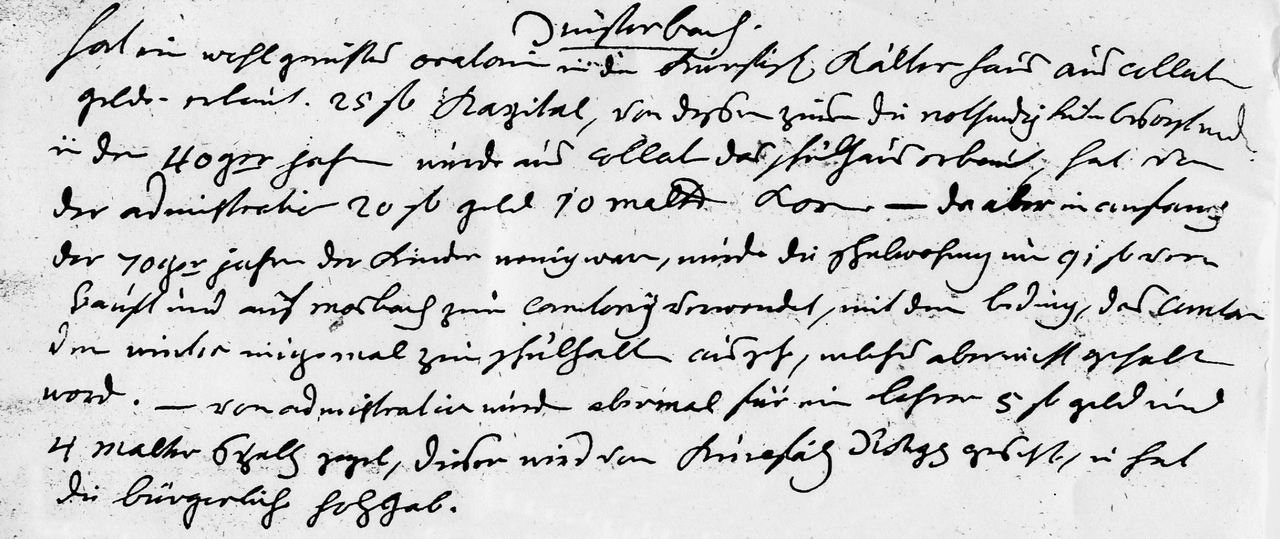 Düsterbach.
hat ein wohl gerüstes oratorium in den Churfürstl. Kälter haus aus collect
gelder erbaut. 25 fl Kapital, von dessen zinsen die nothwendigkeiten besorgt werd.
in den 40ger jahren wurde aus collect das schulhaus erbaut, hat von
der administratio 20 fl geld 10 malter Korn — da aber im anfang
der 70ger jahren der Kinder wenig waren, wurde die schulwohnung um 91 fl ver
kauft und auf mosbach zum cantorey verwendet, mit dem beding, das cantor
den winter einigemal zum schulhalten ausgeh, welches aber nicht gehalt
word. — von administration wird abermal für ein lehrer 5 fl geld und
4 malter Spelz gegeb, dieser wird von Churpfälz gesetzt, er hat
die bürgerliche holzgab.